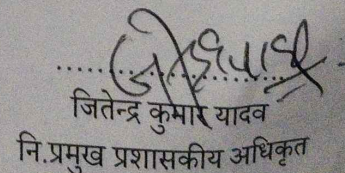 जितेन्द्र कुमार यादव
नि.प्रमुख प्रशासकीय अधिकृत